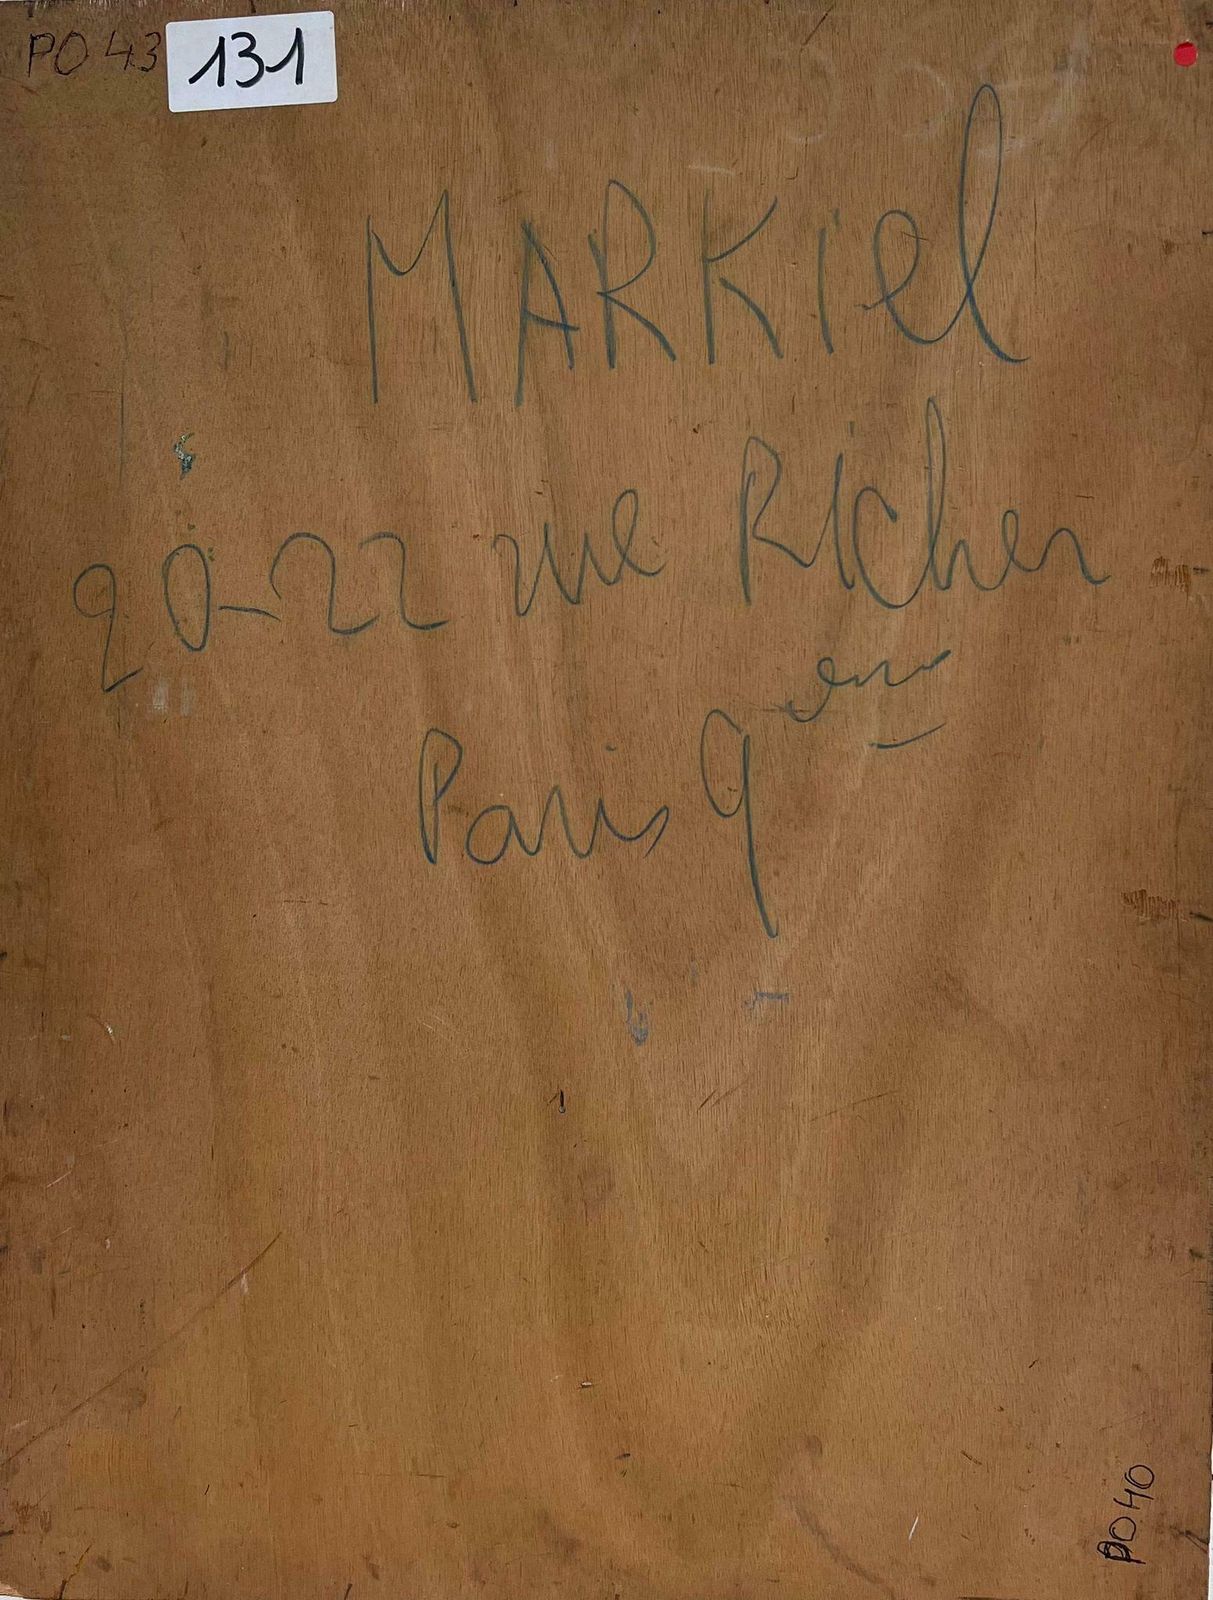 PO 43
131
MARKiel
20-22 rue Richer
Paris 9 eme
PO 40